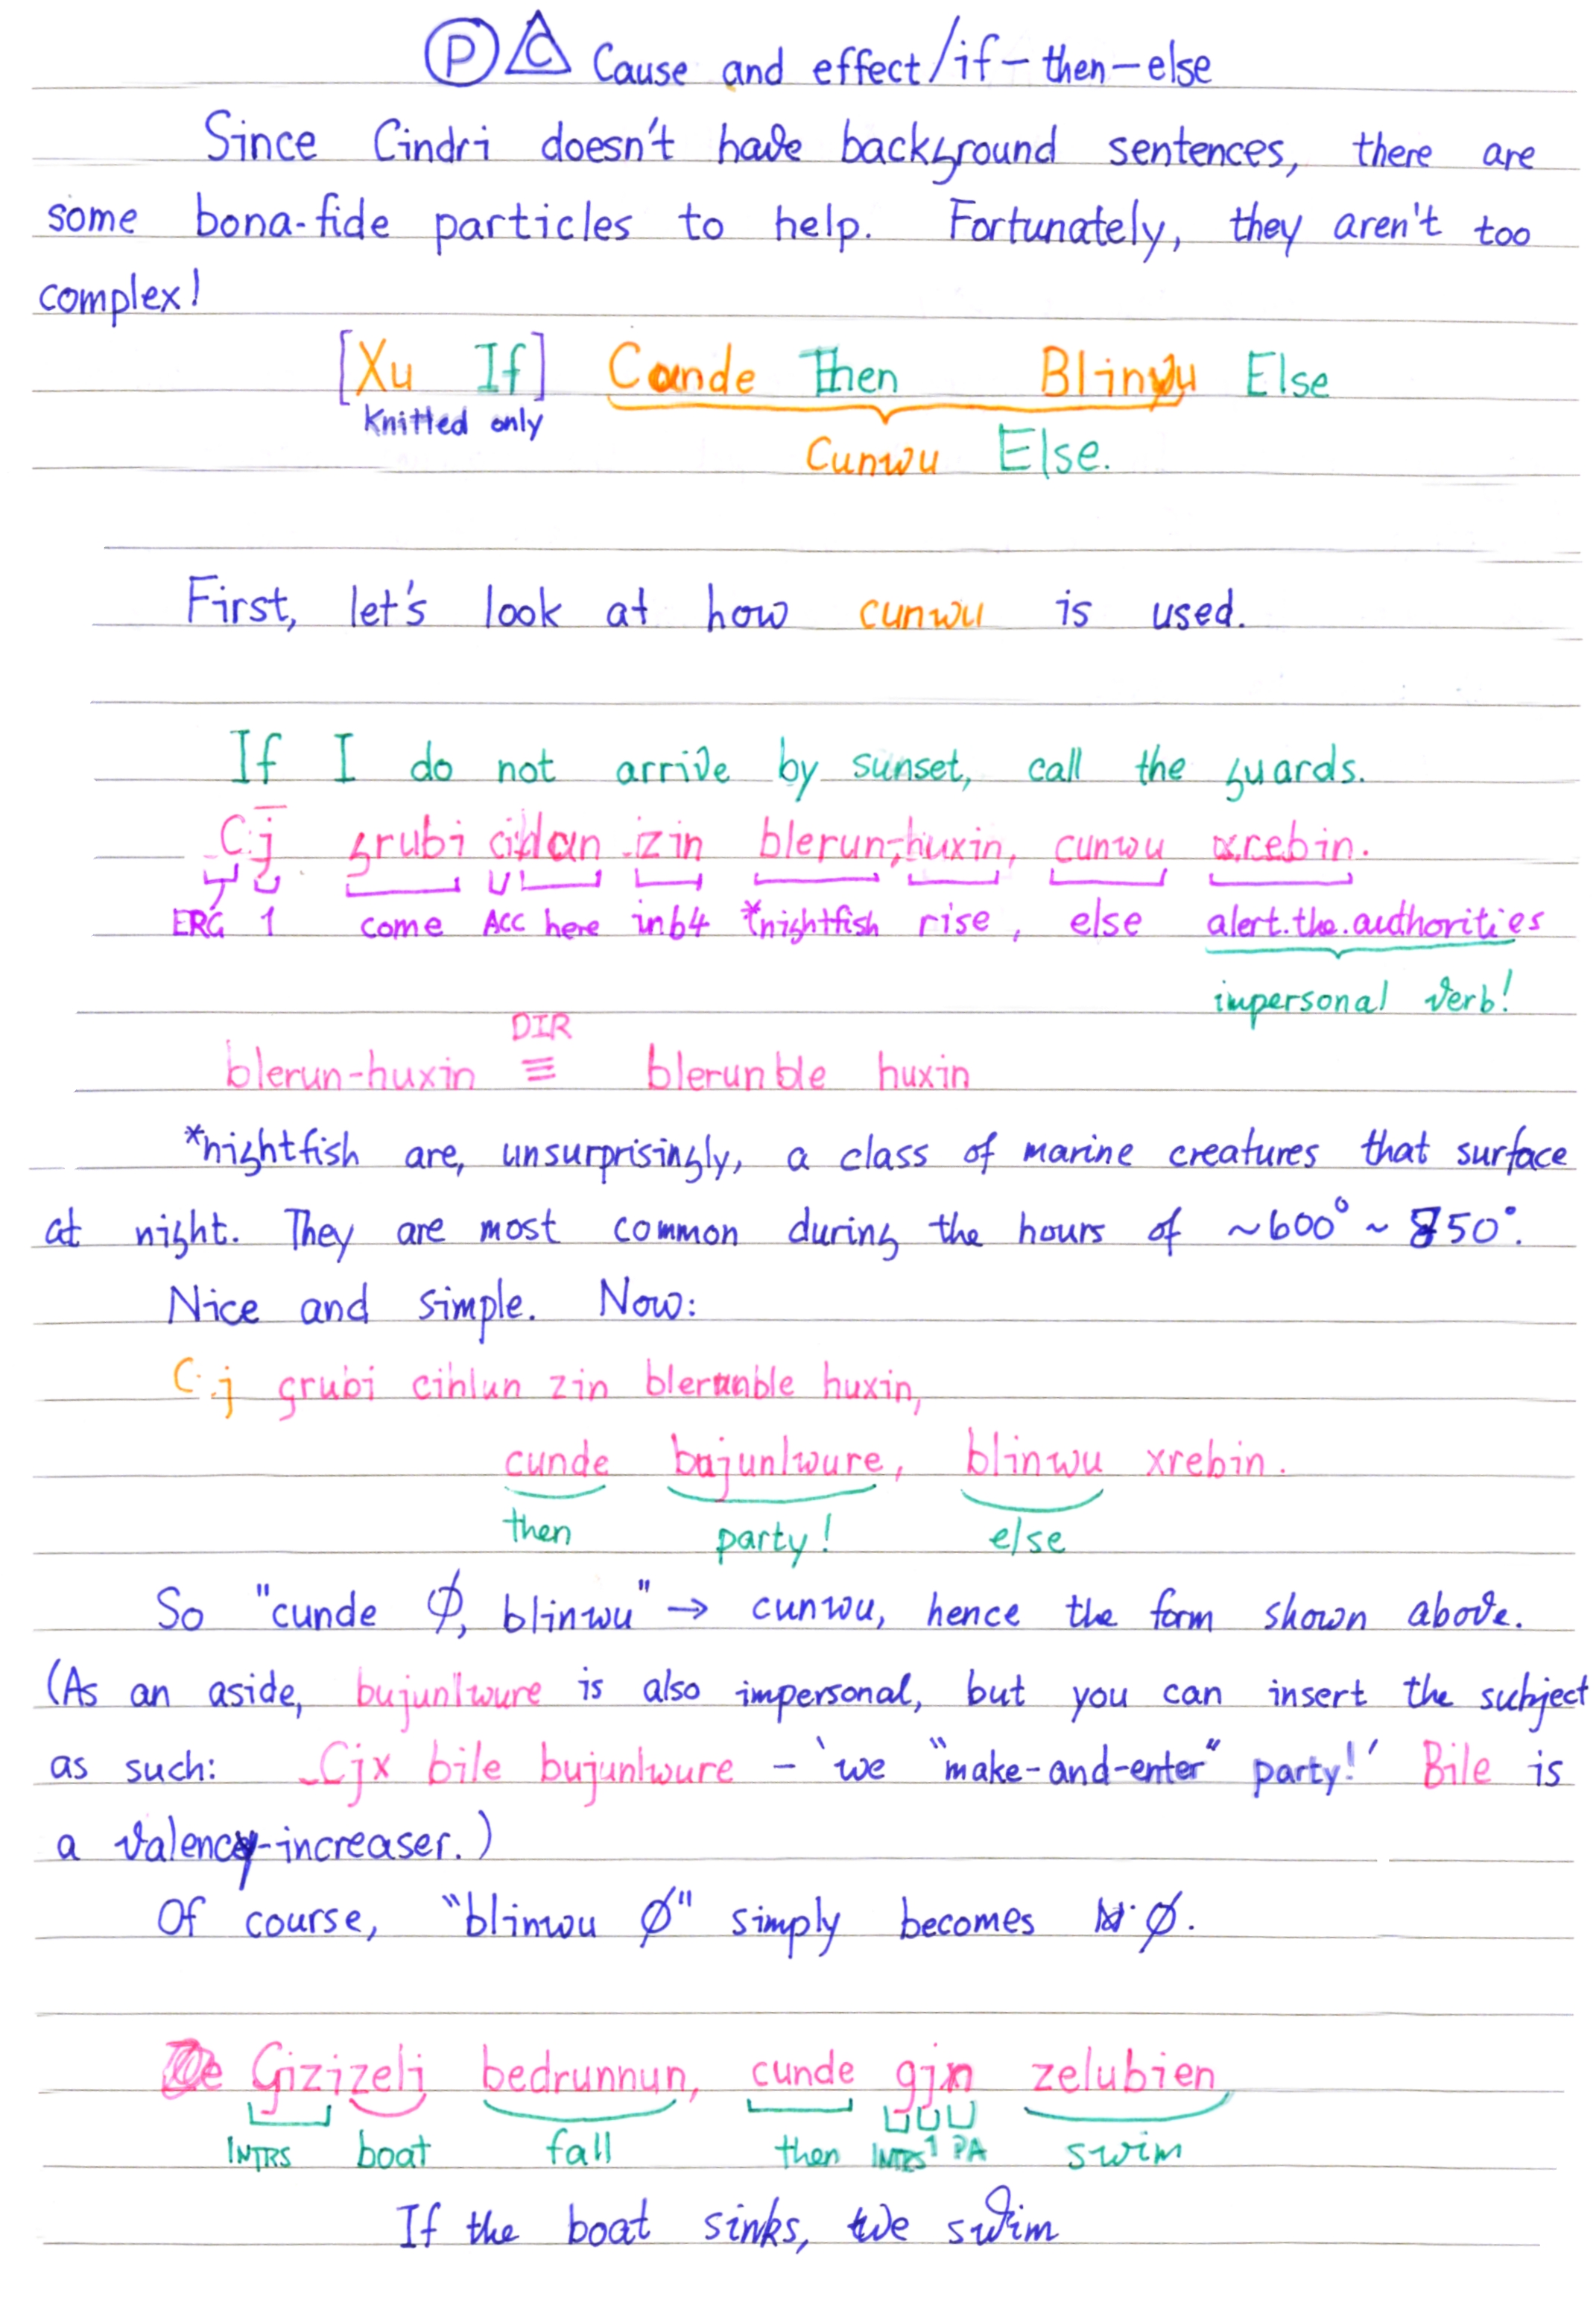 P C Cause and effect/if-then-else
Since Cindri doesn't have background sentences, there are
some bona-fide particles to help. Fortunately, they aren't too
complex!
[Xu If] Cunde Then Blinwu Else
Knitted only
Cunwu Else.
First, let's look at how cunwu is used.
If I do not arrive by sunset, call the guards.
grubi cihlun zin blerun-huxin, cunwu xrebin.
ERG 1 come ACC here inb4 *nightfish rise, else alert.the.authorities
impersonal verb!
DIR
blerun-huxin ≡ blerunble huxin
*nightfish are, unsurprisingly, a class of marine creatures that surface
at night. They are most common during the hours of ~600° ~ 850°.
Nice and simple. Now:
C.j grubi cihlun zin blerunble huxin,
cunde bujunlwure, blinwu xrebin.
then party! else
So "cunde ∅, blinwu" → cunwu, hence the form shown above.
(As an aside, bujunlwure is also impersonal, but you can insert the subject
as such: Cjx bile bujunlwure - 'we "make-and-enter" party!' Bile is
a valency-increaser.)
Of course, "blinwu ∅" simply becomes ∅.
Gizizelj bedrunnun, cunde gjn zelubien
INTRS boat fall then INTRS 1 PA swim
If the boat sinks, we swim